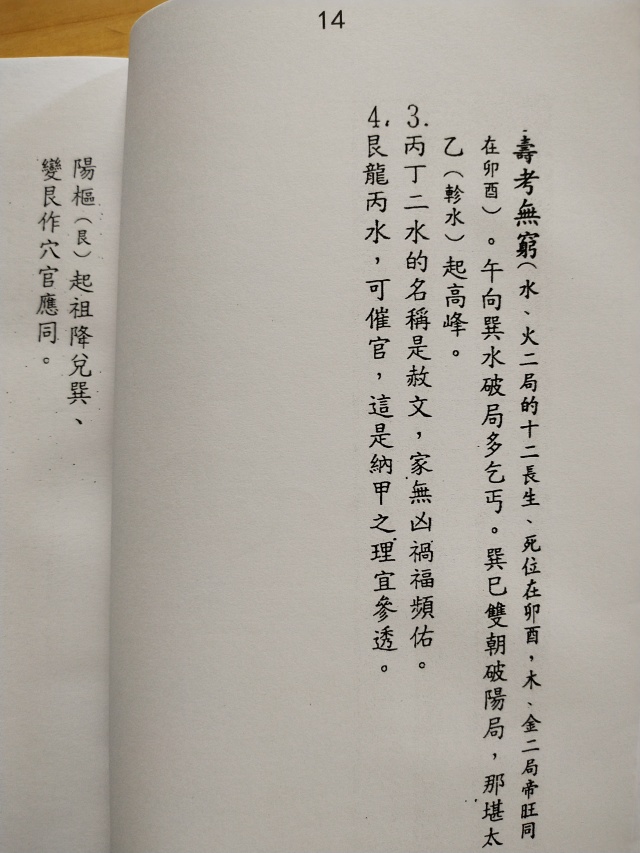 14
壽考無窮（水、火二局的十二長生、死位在卯酉，木、金二局帝旺同
在卯酉）。午向巽水破局多乞丐。巽巳雙朝破陽局，那堪太
乙（軫水）起高峰。
3.丙丁二水的名稱是赦文，家無凶禍福頻佑。
4.艮龍丙水，可催官，這是納甲之理宜參透。
陽樞（艮）起祖降兌巽、
變艮作穴官應同。